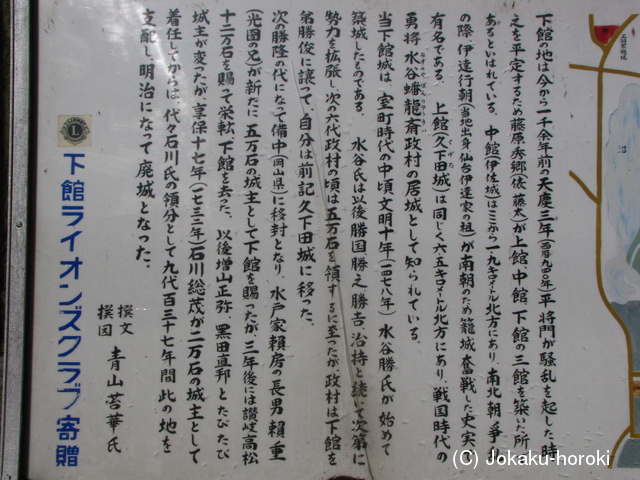 下館の地は今から一千余年前の天慶三年(西暦九四〇年)平将門が騒乱を起した時
之を平定するため藤原秀郷(俵藤太)が上館中館下館の三館を築いた所で
あるといはれている。中館(伊佐城)はこゝから一、九キロメートル北方にあり、南北朝争乱
の際伊達行朝(当地出身仙台伊達家の祖)が南朝のため籠城奮戦した史実で
有名である。上館(久下田城)は同じく六、五キロメートル北方にあり、戦国時代の
勇将水谷蟠龍斎政村の居城として知られている。
当下館城は、室町時代の中頃文明十年(一四七八年)水谷勝氏が始めて
築城したものである 水谷氏は以後勝国、勝之、勝吉、治持と続いて次第に
勢力を拡張し、次の六代政村の頃は五万石を領するに至ったが、政村は下館を
弟勝俊に譲って、自分は前記久下田城に移った。
次の勝隆の代になって備中(岡山県)に移封となり、水戸家頼房の長男頼重
(光圀の兄)が新たに五万石の城主として下館を賜ったが、三年後には讃岐高松
十二万石を賜って栄転、下館を去った。以後増山正弥、黒田直邦とたびたび
城主が変ったが、享保十七年(一七三二年)石川総茂が二万石の城主として
着任してからは、代々石川氏の領分として九代百三十七年間此の地を
支配し、明治になって廃城となった。
撰文
撰図 青山苔華氏
下館ライオンズクラブ寄贈
L
(C) Jokaku-horoki